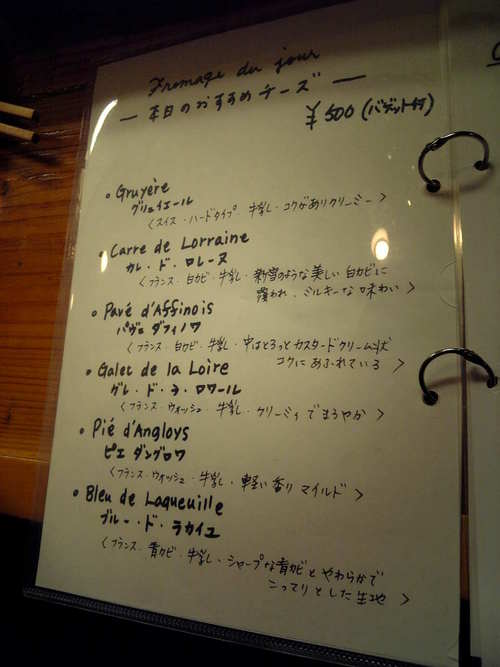 Fromage du jour
— 本日のおすすめチーズ —
¥500 (バゲット付)
• Gruyère
グリュイエール
<スイス・ハードタイプ 牛乳・コクがありクリーミー>
• Carre de Lorraine
カレ・ド・ロレーヌ
<フランス・白カビ・牛乳・新雪のような美しい白カビに
覆われ、ミルキーな味わい>
• Pavé d'Affinois
パヴェ ダフィノワ
<フランス・白カビ・牛乳・中はとろっとカスタードクリーム状
コクにあふれている>
• Galet de la Loire
グレ・ド・ラ・ロワール
<フランス・ウォッシュ・牛乳・クリーミィでまろやか>
• Pié d'Angloys
ピエ ダングロワ
<フランス・ウォッシュ・牛乳・軽い香り マイルド>
• Bleu de Laqueuille
ブルー・ド・ラカイユ
<フランス・青カビ・牛乳・シャープな青カビとやわらかで
こってりとした生地>